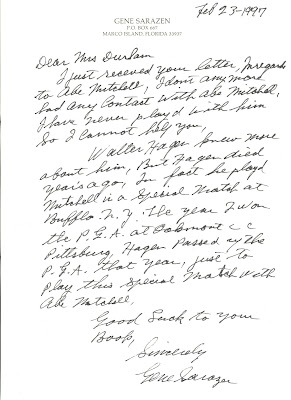 Feb 23-1997
GENE SARAZEN
P.O. BOX 667
MARCO ISLAND, FLORIDA 33937
Dear Mrs Durham
I just received your letter, In regards
to Abe Mitchell, I dont any more
had any Contact with Abe Mitchell,
I have never played with him
So I cannot help you,
Walter Hagen knew more
about him, But Hagen died
years ago, In fact he played
Mitchell in a Special Match at
Buffalo N.Y. the year I won
the P.G.A. at Oakmont C C
Pittsburg, Hagen Passed up the
P.G.A. that year, just to
play this Special Match with
Abe Mitchell,
Good Luck to your
Book,
Sincerely
Gene Sarazen